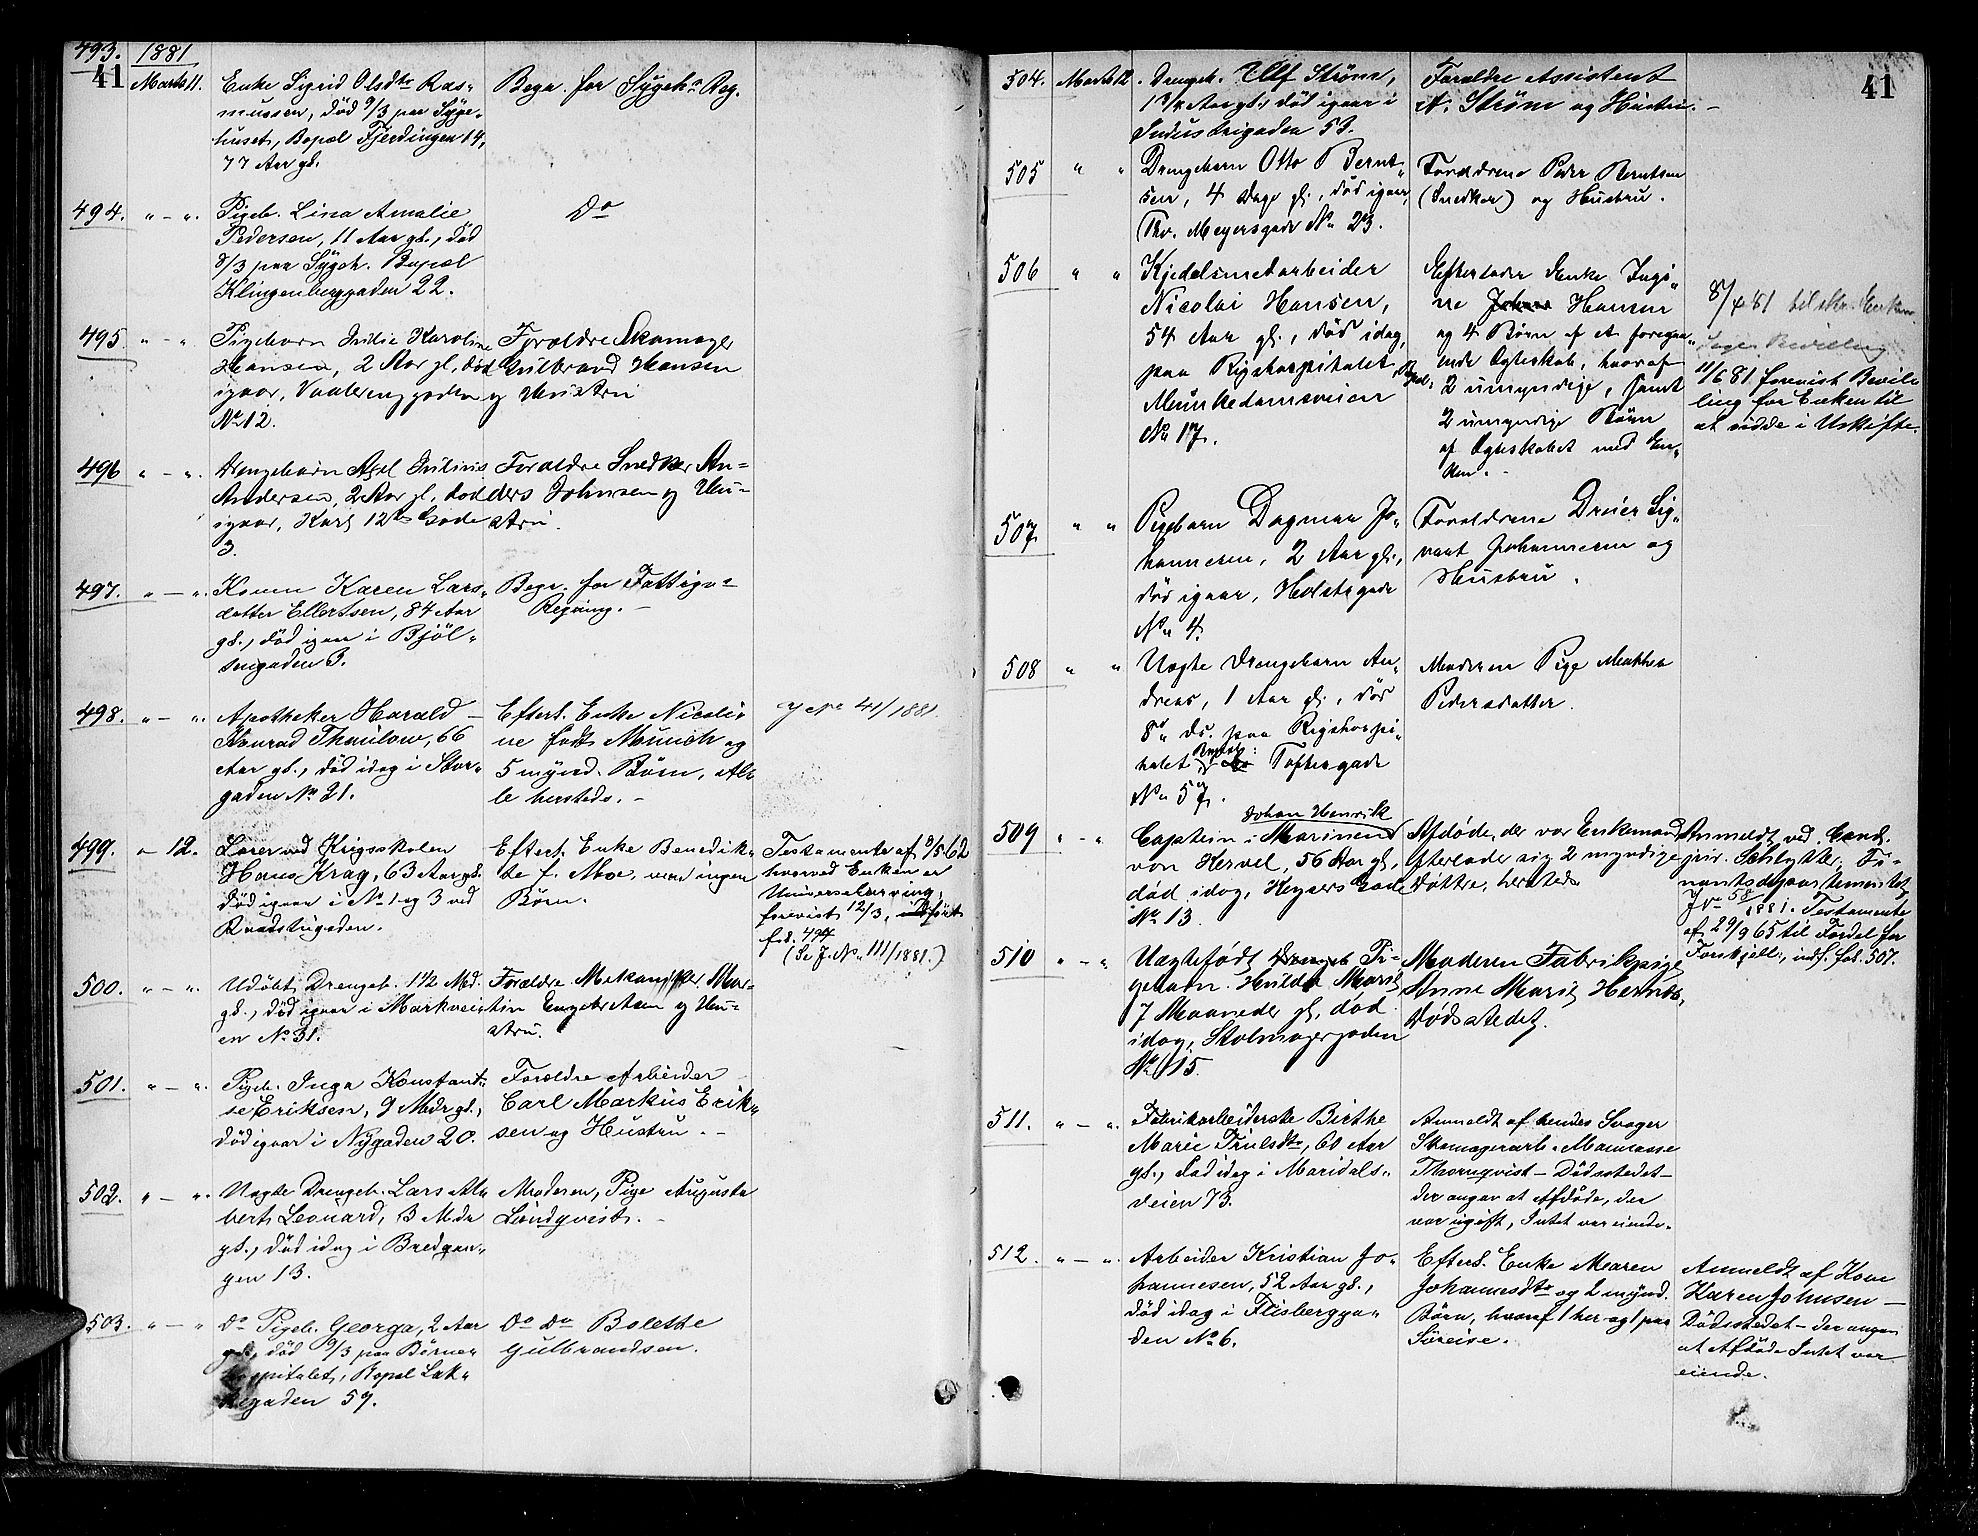 493. 1881
41 Marts 11. Enke Sigrid Olsdtr Ras-
mussen, død 9/3 paa Syge-
huset, Bopæl Fjerdingen 14,
77 Aar gl.
Begr. for Sygeh.s Reg.
494. " – ". Pigeb. Lina Amalie
Pedersen, 11 Aar gl., død
8/3 paa Sygeh. Bopæl
Klingenberggaden 22.
Do
495. " – ". Pigebarn Julie Karoline
Hansen, 2 Aar gl, død
igaar, Vaalerenggaden
No 12.
Forældre Skomager
Gulbrand Hansen
og Hustru
496 " – ". Drengebarn Axel Julius
Andersen, 2 Aar gl, død
igaar, Karl 12tes Gade
3.
Forældre Snedker An-
ders Johnsen og Hu-
stru.
497. " – ". Konen Karen Lars-
datter Ellertsen, 84 Aar
gl., død igaar i Bjöl-
sengaden 3.
Begr. for Fattigv-
Regning. –
498. " – ". Apotheker Harald –
Konrad Thaulow, 66
Aar gl., død idag i Stor-
gaden No 21.
Efterl. Enke Nicoli-
ne født Munich og
5 mynd. Børn, Al-
le hersteds. –
J No 41/1881.
499. – 12. Lærer ved Krigsskolen
Hans Krag, 63 Aar gl.
død igaar i No 1 og 3 ved
Raadstugaden.
Efterl. Enke Benedik-
te f. Moe, men ingen
Børn.
Testamente af 3/5 62
hvorved Enken er
Universalarving,
forevist 12/3, indført
fol. 494
(Se J. No 111/1881.)
500. " – ". Udöbt Drengeb. 1½ Md.
gl., død igaar i Markvei-
en No 31.
Forældre Mekaniker Mar-
tin Engebretsen og Hu-
stru.
501. " – ". Pigeb. Inga Konstant-
se Eriksen, 9 Mdr gl.,
død igaar i Nygaden 20.
Forældre Arbeider
Carl Markus Erik-
sen og Hustru. –
502. " – ". Uægte Drengeb. Lars Al-
bert Leonard, 3 Mdr
gl., død idag i Bredgan-
gen 13.
Moderen, Pige Augusta
Lundqvist. –
503. " – " Do Pigeb. Georga, 2 Aar
gl., død 9/3 paa Börne-
hospitalet, Bopæl Lak-
kegaden 59.
Do Do Bolette
Gulbrandsen.
504. Marts 12. Drengeb. Ulf Strøm,
Aar gl., død igaar i
Industrigaden 53.
Forældre Assistent
A. Strøm og Hustru. –
41
505 " " Drengebarn Otto Bernt-
sen, 4 Dage gl., død igaar,
Thv. Meyersgade No 23.
Forældrene Peder Berntsen
(Snedker) og Hustru.
506 " " Kjedelsmedarbeider
Nicolai Hansen,
54 Aar gl., død idag,
paa Rigshospitalet, Bopæl:
Munkedamsveien
No 17.
Efterlader Enke
Hansen
og 4 Børn af et foregaa-
ende Ægteskab, hvoraf
2 umyndige, samt
2 umyndige Børn
af Ægteskabet med En-
ken. –
8/4 81 til Enken
Bevilling
11/6 81 forevist Bevil-
ling for Enken til
at sidde i Uskifte.
507 " " Pigebarn Dagmar Jo-
hannesen, 2 Aar gl.,
død igaar, Holstsgade
No 4.
Forældrene Dreier Sig-
vart Johannesen og
Hustru.
508 " " Uægte Drengebarn An-
dreas, 1 Aar gl., død
8de ds. paa Rigshospi-
talet Bopæl: Toftesgade
No 57.
Moderen Pige Mathea
Pedersdatter.
509 " – " Captein i Marinen Johan Henrik
von Kervel, 56 Aar gl,
død idag, Heyers Gade
No 13.
Afdøde, der var Enkemand
efterlader sig 2 myndige
Døttre, hersteds
Anmeldt ved Cand.
jur. Schlytter. Fi-
nantsdepartementet
J No 58/1881. Testamente
af 29/9 65 til Fordel for
Forskjell., indf. fol. 507.
510 " – " Uægtefødt Drengeb Pi-
gebarn Hulda Marie
7 Maaneder gl, død
idag, Stolmagergaden
No 15.
Moderen Fabrikpige
Anne Marie Hernæs,
Dødsstedet.
511. " – ". Fabrikarbeiderske Birthe
Marie Trulsdtr, 60 Aar
gl., død idag i Maridals-
veien 73.
Anmeldt af hendes Svoger
Skomagerarb. Manasse
Thornqvist – Dødsstedet –
der angav at Afdøde, der
var ugift, Intet var eiende.
512. " – ". Arbeider Kristian Jo-
hannesen, 52 Aar gl.,
död idag i Flisbergga-
den No 6.
Efterl. Enke Maren
Johannesdtr og 2 mynd.
Børn, hvoraf 1 her og 1 paa
Søreise.
Anmeldt af Kone
Karen Johnsen –
Dødsstedet – der angav
at Afdøde Intet var
eiende.